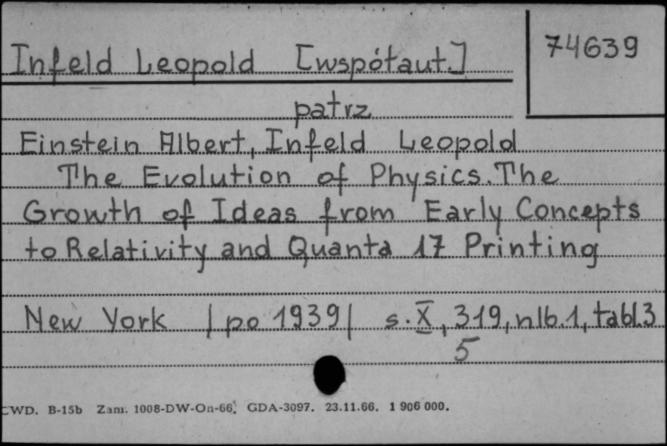 Infeld Leopold [wspótaut.]
74639
patrz
Einstein Albert, Infeld Leopold
The Evolution of Physics. The
Growth of Ideas from Early Concepts
to Relativity and Quanta 17 Printing
New York |po 1939| s. X, 319, nlb. 1, tabl. 3
5
CWD. B-15b Zam. 1008-DW-On-66, GDA-3097. 23.11.66. 1 906 000.